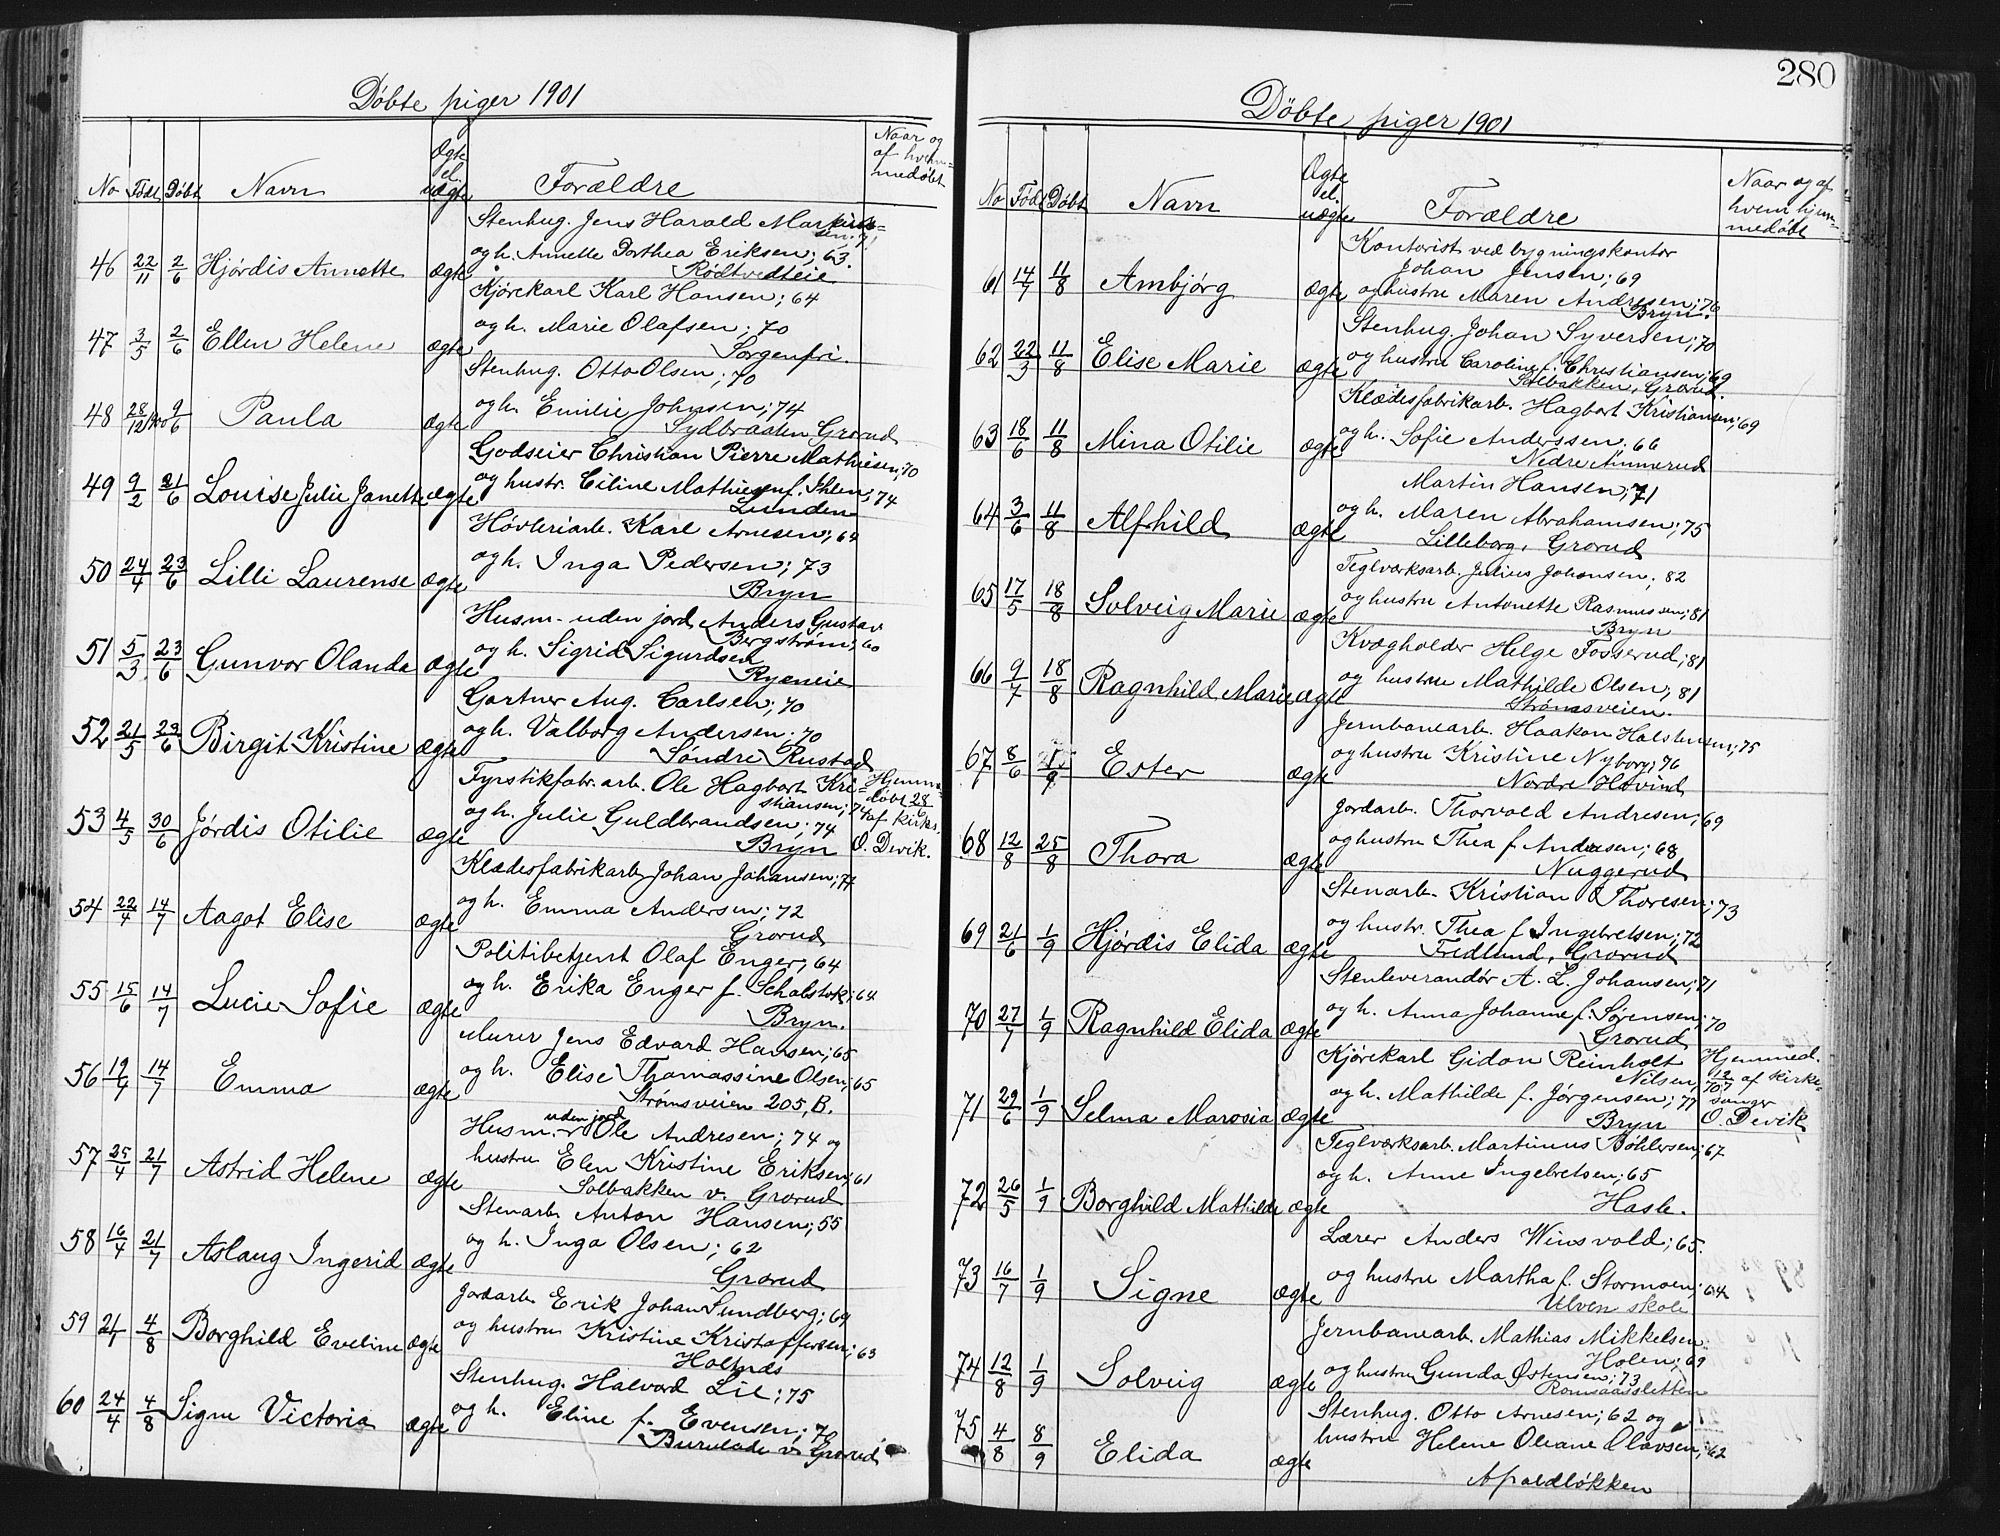 Döbte piger 1901
No Födt Döbt Navn Ægte el. uægte Forældre Naar og af hvem hjemmedöbt
Stenhug. Jens Harald Markus=
sen; 71
46 22/11 2/6 Hjördis Annette ægte og h. Annette Dorthea Eriksen; 63.
Rödtvedteie
Kjörekarl Karl Hansen; 64
47 3/5 2/6 Ellen Helene ægte og h. Marie Olafsen; 70
Sorgenfri
Stenhug. Otto Olsen; 70
48 28/12 1900 9/6 Paula ægte og h. Emilie Johnsen; 74
Sydbraaten Grorud
Godseier Christian Pierre Mathiesen; 70
49 9/2 21/6 Louise Julie Janette ægte og hustr. Ciline Mathiesen f. Ihlen; 74
Linden
Hövleriarb. Karl Arnesen; 64
50 24/4 23/6 Lilli Laurense ægte og h. Inga Pedersen; 73
Bryn
Husm. uden jord Anders Gustav
Bergström; 60
51 5/3 23/6 Gunvor Olanda ægte og h. Sigrid Sigurdsen
Ryeneie
Gartner Aug. Carlsen; 70
52 21/5 23/6 Birgit Kristine ægte og h. Valborg Andersen; 70
Söndre Rustad
Fyrstikfabr.arb. Ole Hagbart Kri=
stiansen; 74
53 4/5 30/6 Jördis Otilie ægte og h. Julie Guldbrandsen; 74
Bryn
Hjemme=
döbt 28/
af kirks.
O. Devik.
Klædesfabrikarb. Johan Johansen; 77
54 22/4 14/7 Aagot Elise ægte og h. Emma Andersen; 72
Grorud
Politibetjent Olaf Enger; 64
55 15/6 14/7 Lucie Sofie ægte og h. Erika Enger f. Schalstok; 64
Bryn.
Murer Jens Edvard Hansen; 65
56 19/4 14/7 Emma ægte og h. Elise Thomassine Olsen; 65
Strömsveien 205, B.
Husm. uden jord Ole Andresen; 74 og
57 25/4 21/7 Astrid Helene ægte hustru Elen Kristine Eriksen; 61
Solbakken v. Grorud
Stenarb. Anton Hansen; 55
58 16/4 21/7 Aslaug Ingerid ægte og h. Inga Olsen; 62
Grorud
Jordarb. Erik Johan Sundberg; 69
59 4/8 Borghild Eveline ægte og hustru Kristine Kristoffersen; 63
Stenhug. Halvard Lie; 75
60 24/4 4/8 Signe Victoria ægte og h. Eline f. Evensen;
v. Grorud
280
Döbte piger 1901
No Födt Döbt Navn Ægte el. uægte Forældre Naar og af hvem hjemmedöbt
Kontorist ved bygningskontor
Johan Jensen; 69
61 14/7 11/8 Ambjörg ægte og hustru Maren Andresen; 76
Bryn.
Stenhug. Johan Syversen; 70
62 22/3 11/8 Elise Marie ægte og hustru Caroline f. Christiansen; 69
Solbakken, Grorud.
Klædesfabrikarb. Hagbart Kristiansen; 69
63 18/6 11/8 Mina Otilie ægte og h. Sofie Anderssen. 66
Nedre Ammerud
Martin Hansen; 71
64 3/6 11/8 Alfhild ægte og h. Maren Abrahamsen; 75
Lilleborg, Grorud
Teglværksarb. Julius Johansen; 82
65 17/5 18/8 Solveig Marie ægte og hustru Antonette Rasmussen; 81
Bryn
Kvægholder Helge Fosserud; 81
66 9/7 18/8 Ragnhild Marie ægte og hustrue Mathilde Olsen; 81
Strömsveien.
Jernbanearb. Haakon Halstensen; 75
67 8/6 1/9 Ester ægte og hustru Kristine Nyborg; 76
Nordre Hovind
Jordarb. Thorvald Andresen; 69
68 12/8 25/8 Thora ægte og hustru Thea f. Andersen; 68
Nuggerud
Stenarb. Kristian Thoresen; 73
69 21/6 1/9 Hjördis Elida ægte og hustr. Thea f. Ingebretsen; 72
Fredlund, Grorud
Stenleverandör A. L. Johansen; 71
70 27/7 1/9 Ragnhild Elida ægte og h. Anna Johanne f. Sörensen; 70
Grorud
Kjörekarl Gidon Reinholt
Nilsen;
71 29/6 1/9 Selma Marosia ægte og h. Mathilde f. Jörgensen; 77
Bryn
Hjemmed.
12/7 af kirke=
sanger
O. Devik
Teglværksarb. Martinius Böhlersen; 67
og h. Anne Ingebretsen; 65
72 26/5 1/9 Borghild Mathilde ægte
Hasle.
Lærer Anders Winsvold; 65.
73 16/7 1/9 Signe ægte og hustru Martha f. Stormoen; 64
Ulven skole
Jernbanearb. Mathias Mikkelsen
Holen; 69
74 12/8 1/9 Solveig ægte og hustru Gunda Östensen; 73
Romsaassletten
Stenhug. Otto Arnesen; 62 og
75 4/8 8/9 Elida ægte hustru Helene Oleane Olavsen; 62
Apaldlökken